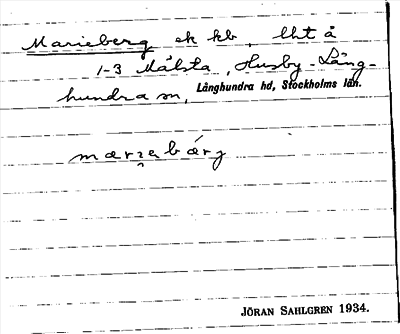 Marieberg ek kb, lht å
1-3 Målsta, Husby-Lång-
hundra sn, Långhundra hd, Stockholms län.
marıebárg
JÖRAN SAHLGREN 1934.